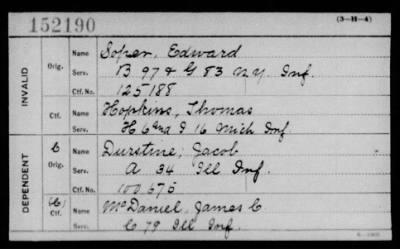 152190
(3-H-4)
INVALID
Orig.
Name Soper, Edward
Serv. B 97 & G 83 N.Y. Inf.
Ctf. No. 125188
Ctf.
Name Hopkins, Thomas
Serv. H 6 & I 16 Mich Inf.
DEPENDENT
C
Orig.
Name Durstine, Jacob
Serv. A 34 Ill Inf.
Ctf. No. 100675
(C)
Ctf.
Name McDaniel, James C
C 79 Ill Inf.